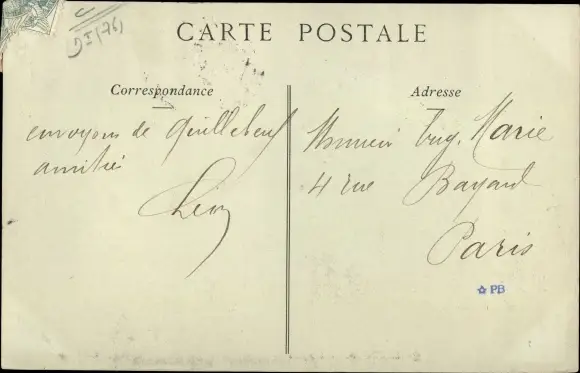 CARTE POSTALE
DI (76)
Correspondance
envoyons de Quillebeuf
amitiés
Léon
Adresse
Monsieur Eug. Marie
4 rue Bayard
Paris
PB